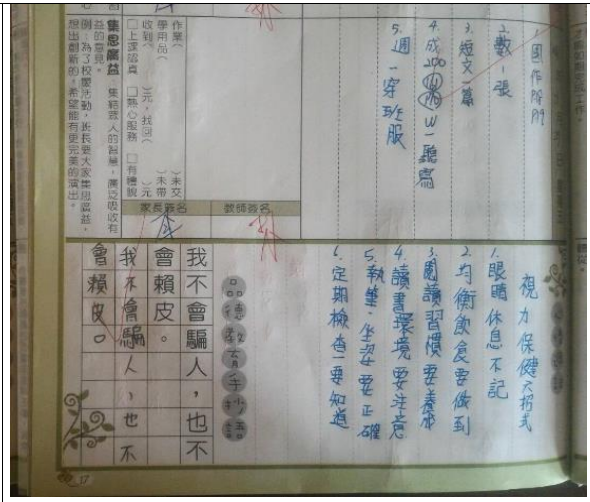 1.國作隔開
2.數1張
3.短文一篇
4.成語200
5.週一穿班服
作業( )未交
學用品( )未帶
收到( )元,找回( )元
□上課認真 □熱心服務 □有禮貌
家長簽名
教師簽名
集思廣益 集結眾人的智慧,廣泛吸收有
益的意見。
例:為了校慶活動,班長要大家集思廣益,
想出創新的,希望能有更完美的演出。
視力保健六招式
1.眼睛休息不記
2.均衡飲食要做到
3.閱讀習慣要養成
4.讀書環境要注意
5.執筆、坐姿要正確
6.定期檢查要知道
品德教育手抄語
我不會騙人,也不
會賴皮。
我不會騙人,也不
會賴皮。
17